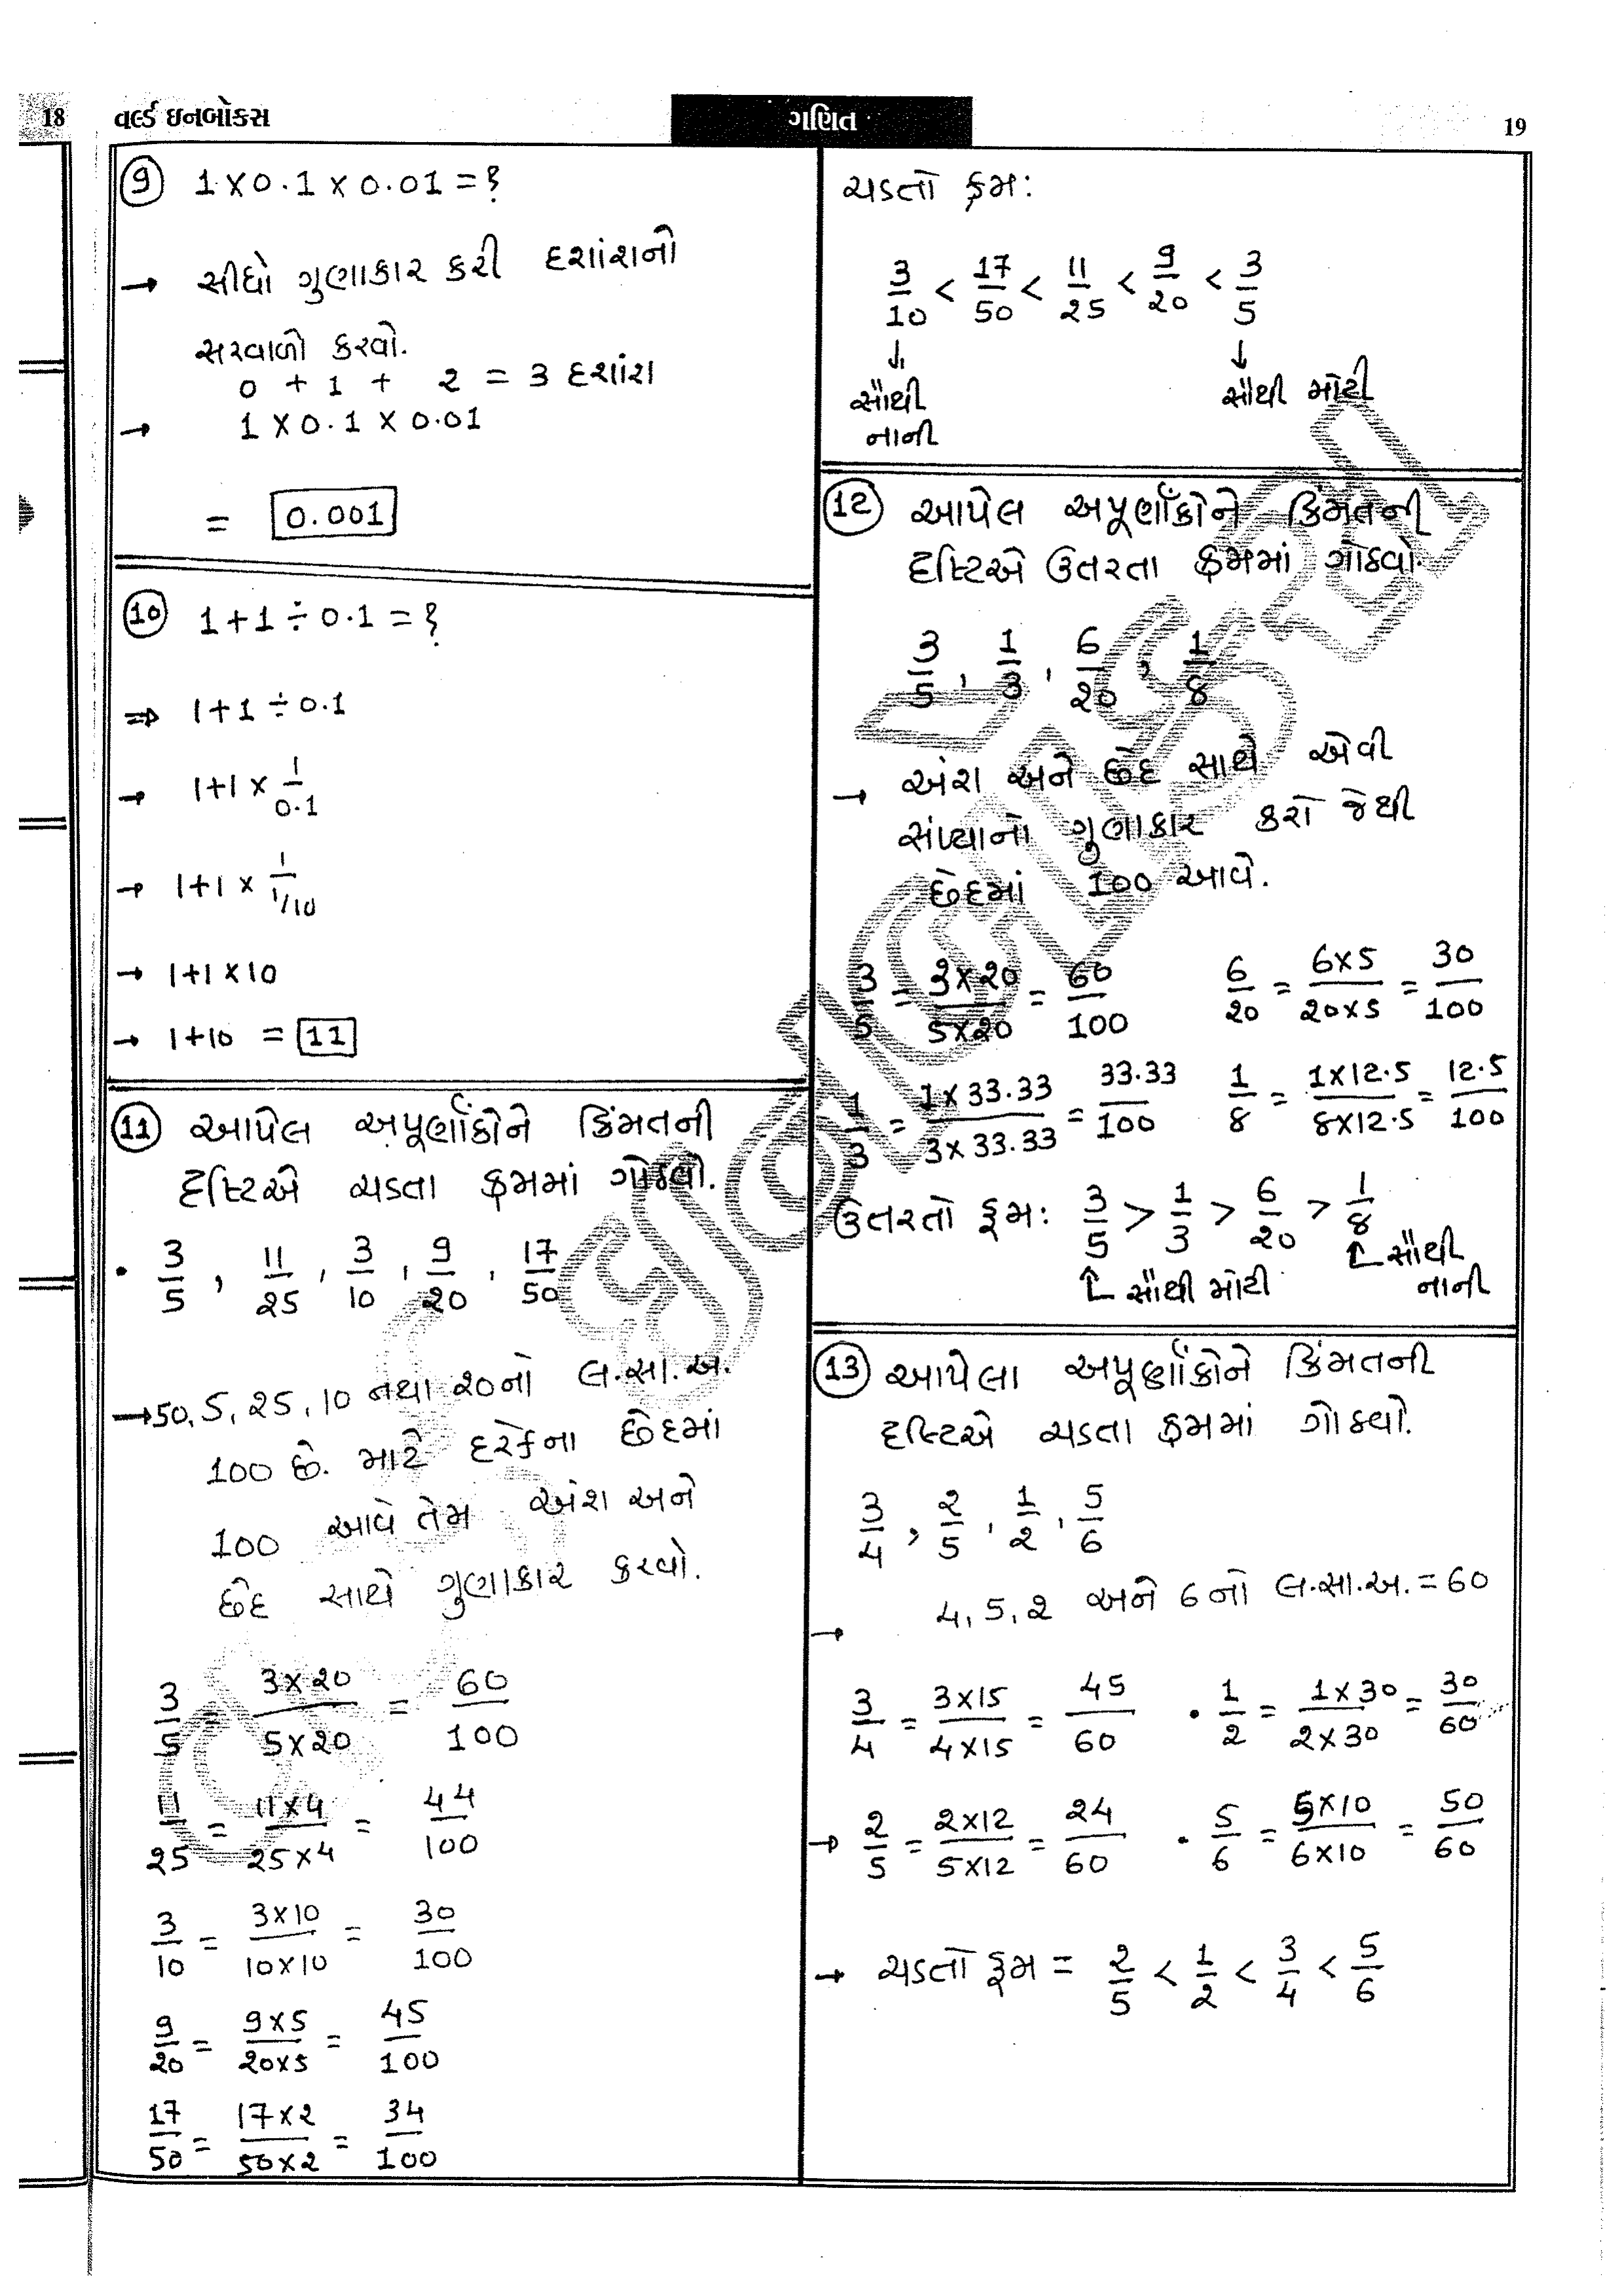 18 વર્લ્ડ ઇનબોક્સ ગણિત 19
9 1 × 0.1 × 0.01 = ?
→ સીધો ગુણાકાર કરી દશાંશનો
સરવાળો કરવો.
0 + 1 + 2 = 3 દશાંશ
→ 1 × 0.1 × 0.01
= 0.001
10 1 + 1 ÷ 0.1 = ?
⇒ 1 + 1 ÷ 0.1
→ 1 + 1 × 1/0.1
→ 1 + 1 × 1/1/10
→ 1 + 1 × 10
→ 1 + 10 = 11
11 આપેલ અપૂર્ણાંકોને કિંમતની
દૃષ્ટિએ ચડતા ક્રમમાં ગોઠવો.
• 3/5, 11/25, 3/10, 9/20, 17/50
→ 50, 5, 25, 10 તથા 20નો લ.સા.અ.
100 છે. માટે દરેકના છેદમાં
100 આવે તેમ અંશ અને
છેદ સાથે ગુણાકાર કરવો.
3/5 = 3×20/5×20 = 60/100
11/25 = 11×4/25×4 = 44/100
3/10 = 3×10/10×10 = 30/100
9/20 = 9×5/20×5 = 45/100
17/50 = 17×2/50×2 = 34/100
ચડતો ક્રમ:
3/10 < 17/50 < 11/25 < 9/20 < 3/5
↓ ↓
સૌથી સૌથી મોટી
નાની
12 આપેલ અપૂર્ણાંકોને કિંમતની
દૃષ્ટિએ ઉતરતા ક્રમમાં ગોઠવો.
3/5, 1/3, 6/20, 1/8
→ અંશ અને છેદ સાથે એવી
સંખ્યાનો ગુણાકાર કરો જેથી
છેદમાં 100 આવે.
3/5 = 3×20/5×20 = 60/100 6/20 = 6×5/20×5 = 30/100
1/3 = 1×33.33/3×33.33 = 33.33/100 1/8 = 1×12.5/8×12.5 = 12.5/100
ઉતરતો ક્રમ: 3/5 > 1/3 > 6/20 > 1/8
સૌથી મોટી સૌથી
નાની
13 આપેલા અપૂર્ણાંકોને કિંમતની
દૃષ્ટિએ ચડતા ક્રમમાં ગોઠવો.
3/4, 2/5, 1/2, 5/6
→ 4, 5, 2 અને 6નો લ.સા.અ. = 60
3/4 = 3×15/4×15 = 45/60 • 1/2 = 1×30/2×30 = 30/60
→ 2/5 = 2×12/5×12 = 24/60 • 5/6 = 5×10/6×10 = 50/60
→ ચડતો ક્રમ = 2/5 < 1/2 < 3/4 < 5/6